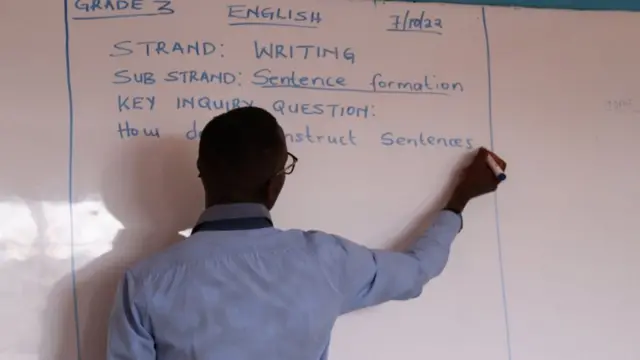 GRADE 3 ENGLISH 7/10/22
STRAND: WRITING
SUB STRAND: Sentence formation
KEY INQUIRY QUESTION:
How nstruct Sentences